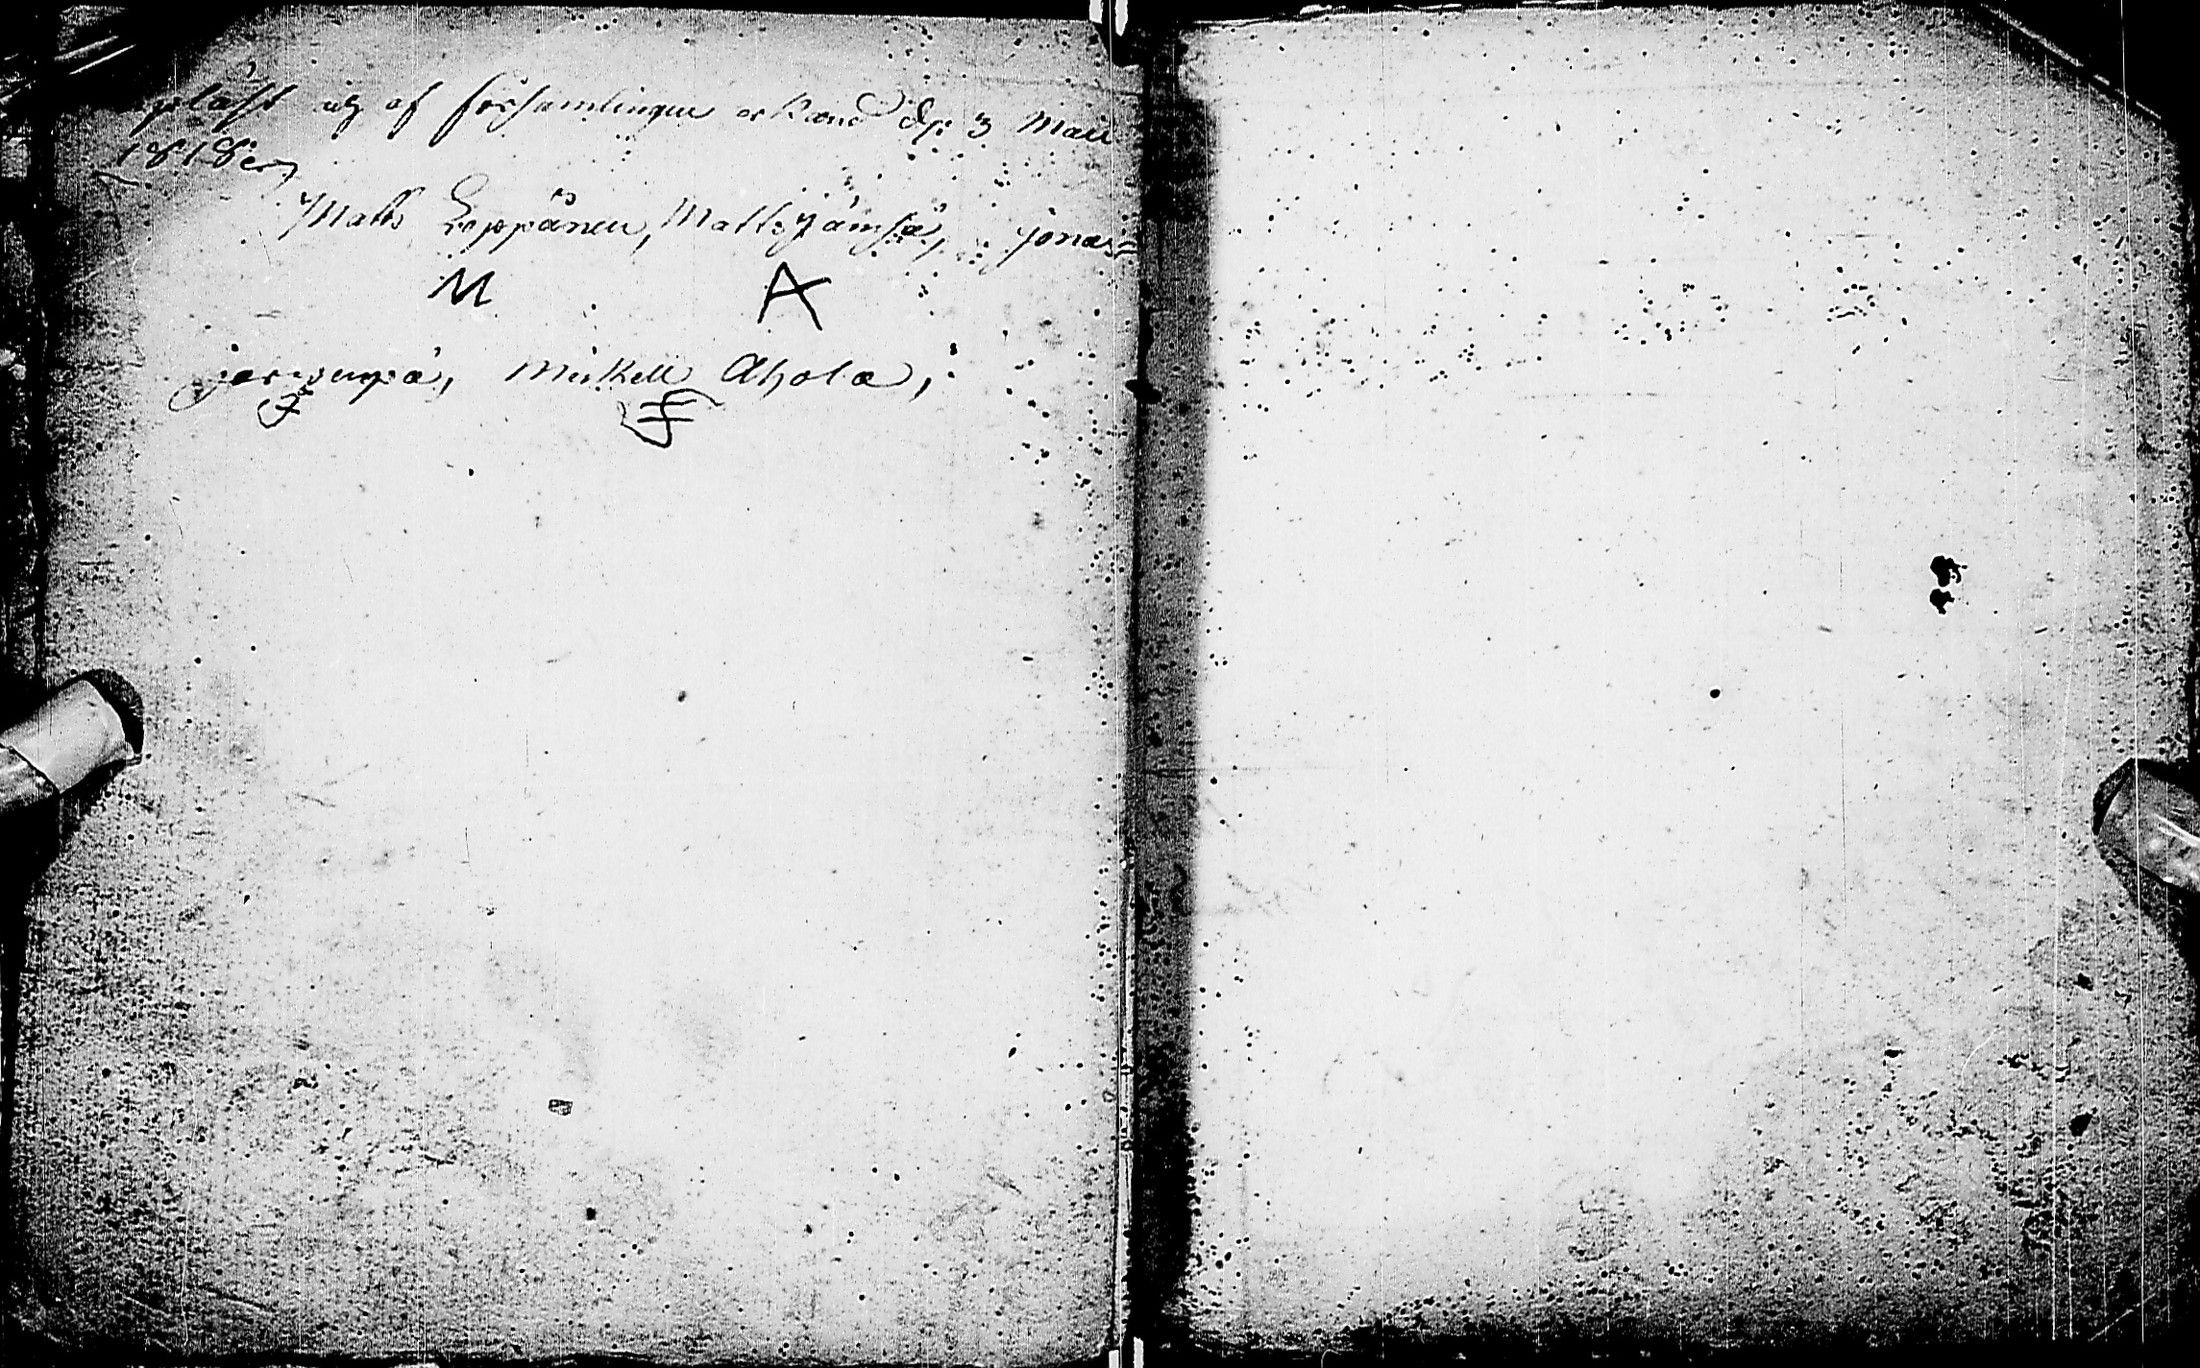 upläst och af församlingen erkänd d. 3 Maii
1818
Matts Leppänen, Matts Jämsä, Jonas
M A
järvenpä, Mickell Ahola,